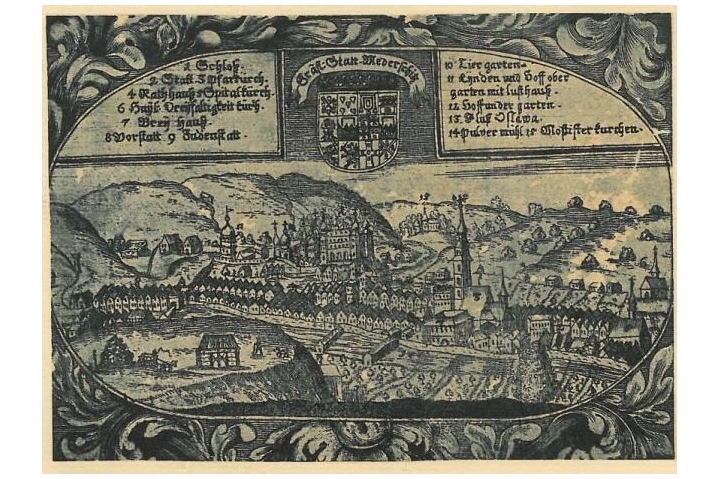 1 Schloß.
2 Statt 3 Pfarkürch.
4 Rathhauß 5 Spital kürch
6 Heÿl: Dreÿfaltigkeit kürch.
7 Breÿ hauß.
8 Vorstatt 9 Judenstatt.
Gräfl: Statt Mederschitz
10 Tier garten.
11 Lÿnden und Hoff ober
garten mit lusthauß.
12 Hoff under garten.
13. Fluß Oslawa.
14 Pulver mühl 15 Mostister kurchen.
15